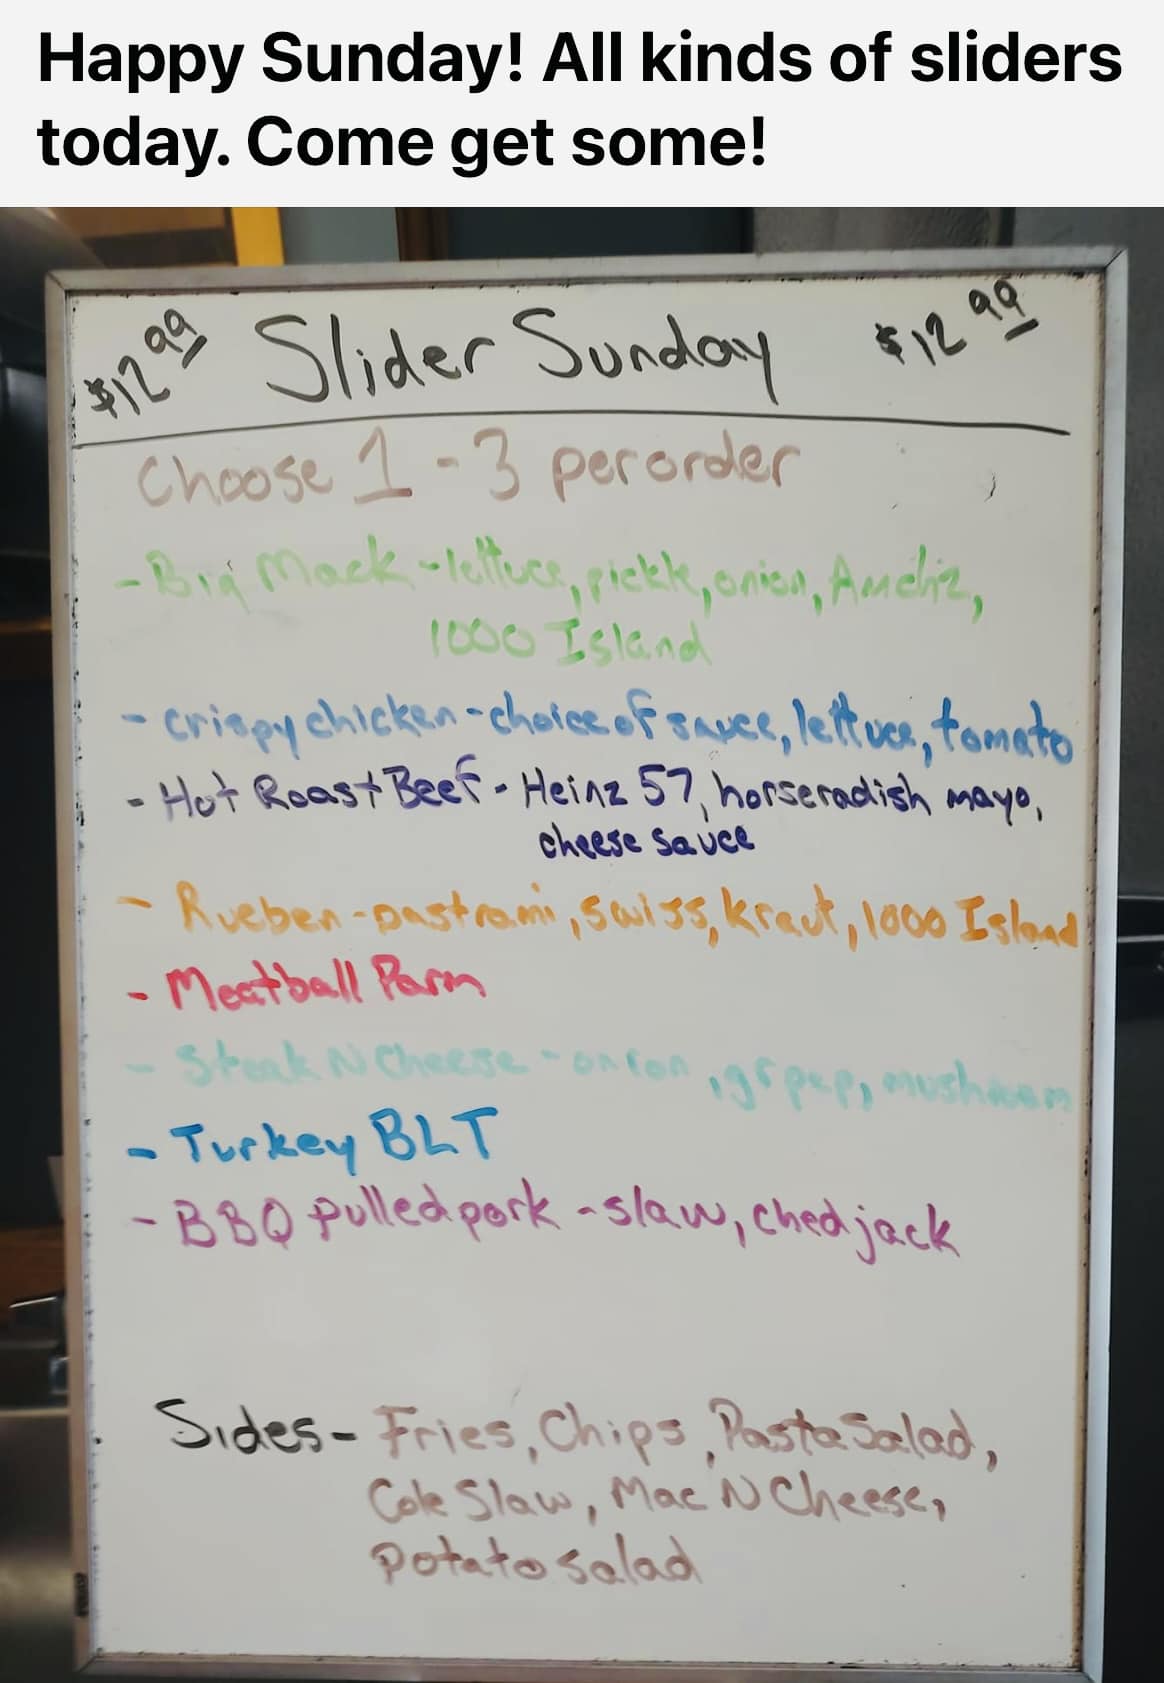 Happy Sunday! All kinds of sliders
today. Come get some!
$12.99 Slider Sunday $12.99
Choose 1-3 per order
- Big Mack - lettuce, pickle, onion, Am chz,
1000 Island
- crispy chicken - choice of sauce, lettuce, tomato
- Hot Roast Beef - Heinz 57, horseradish mayo,
cheese sauce
- Rueben - pastrami, swiss, kraut, 1000 Island
- Meatball Parm
- Steak N Cheese - onion, gr pep, mushroom
- Turkey BLT
- BBQ pulled pork - slaw, ched jack
Sides - Fries, Chips, Pasta Salad,
Cole Slaw, Mac N Cheese,
Potato salad